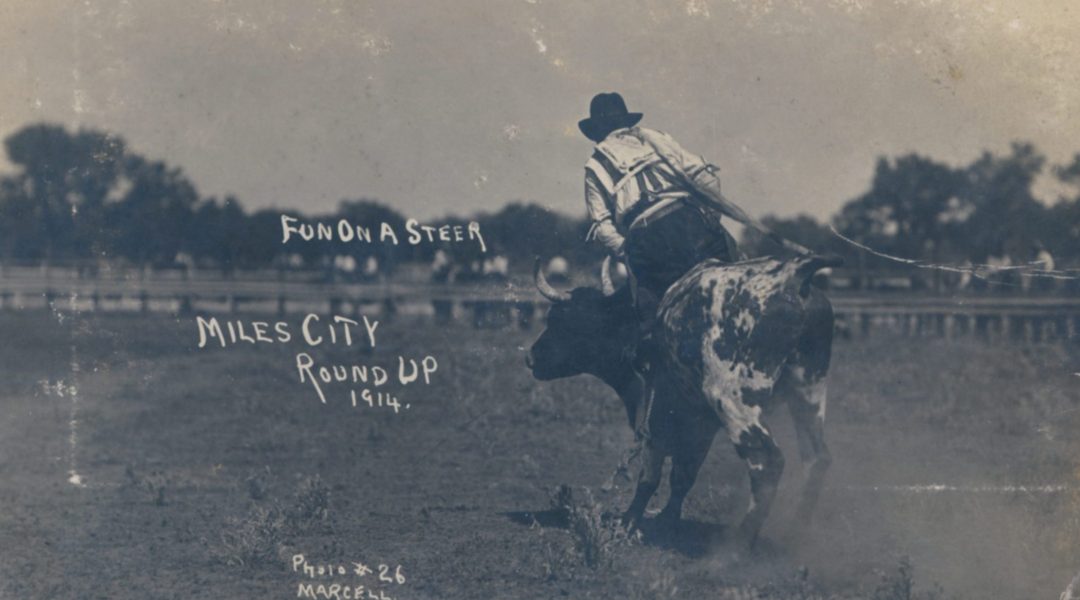 FUN ON A STEER
MILES CITY
ROUND UP
1914.
PHOTO #26
MARCELL.